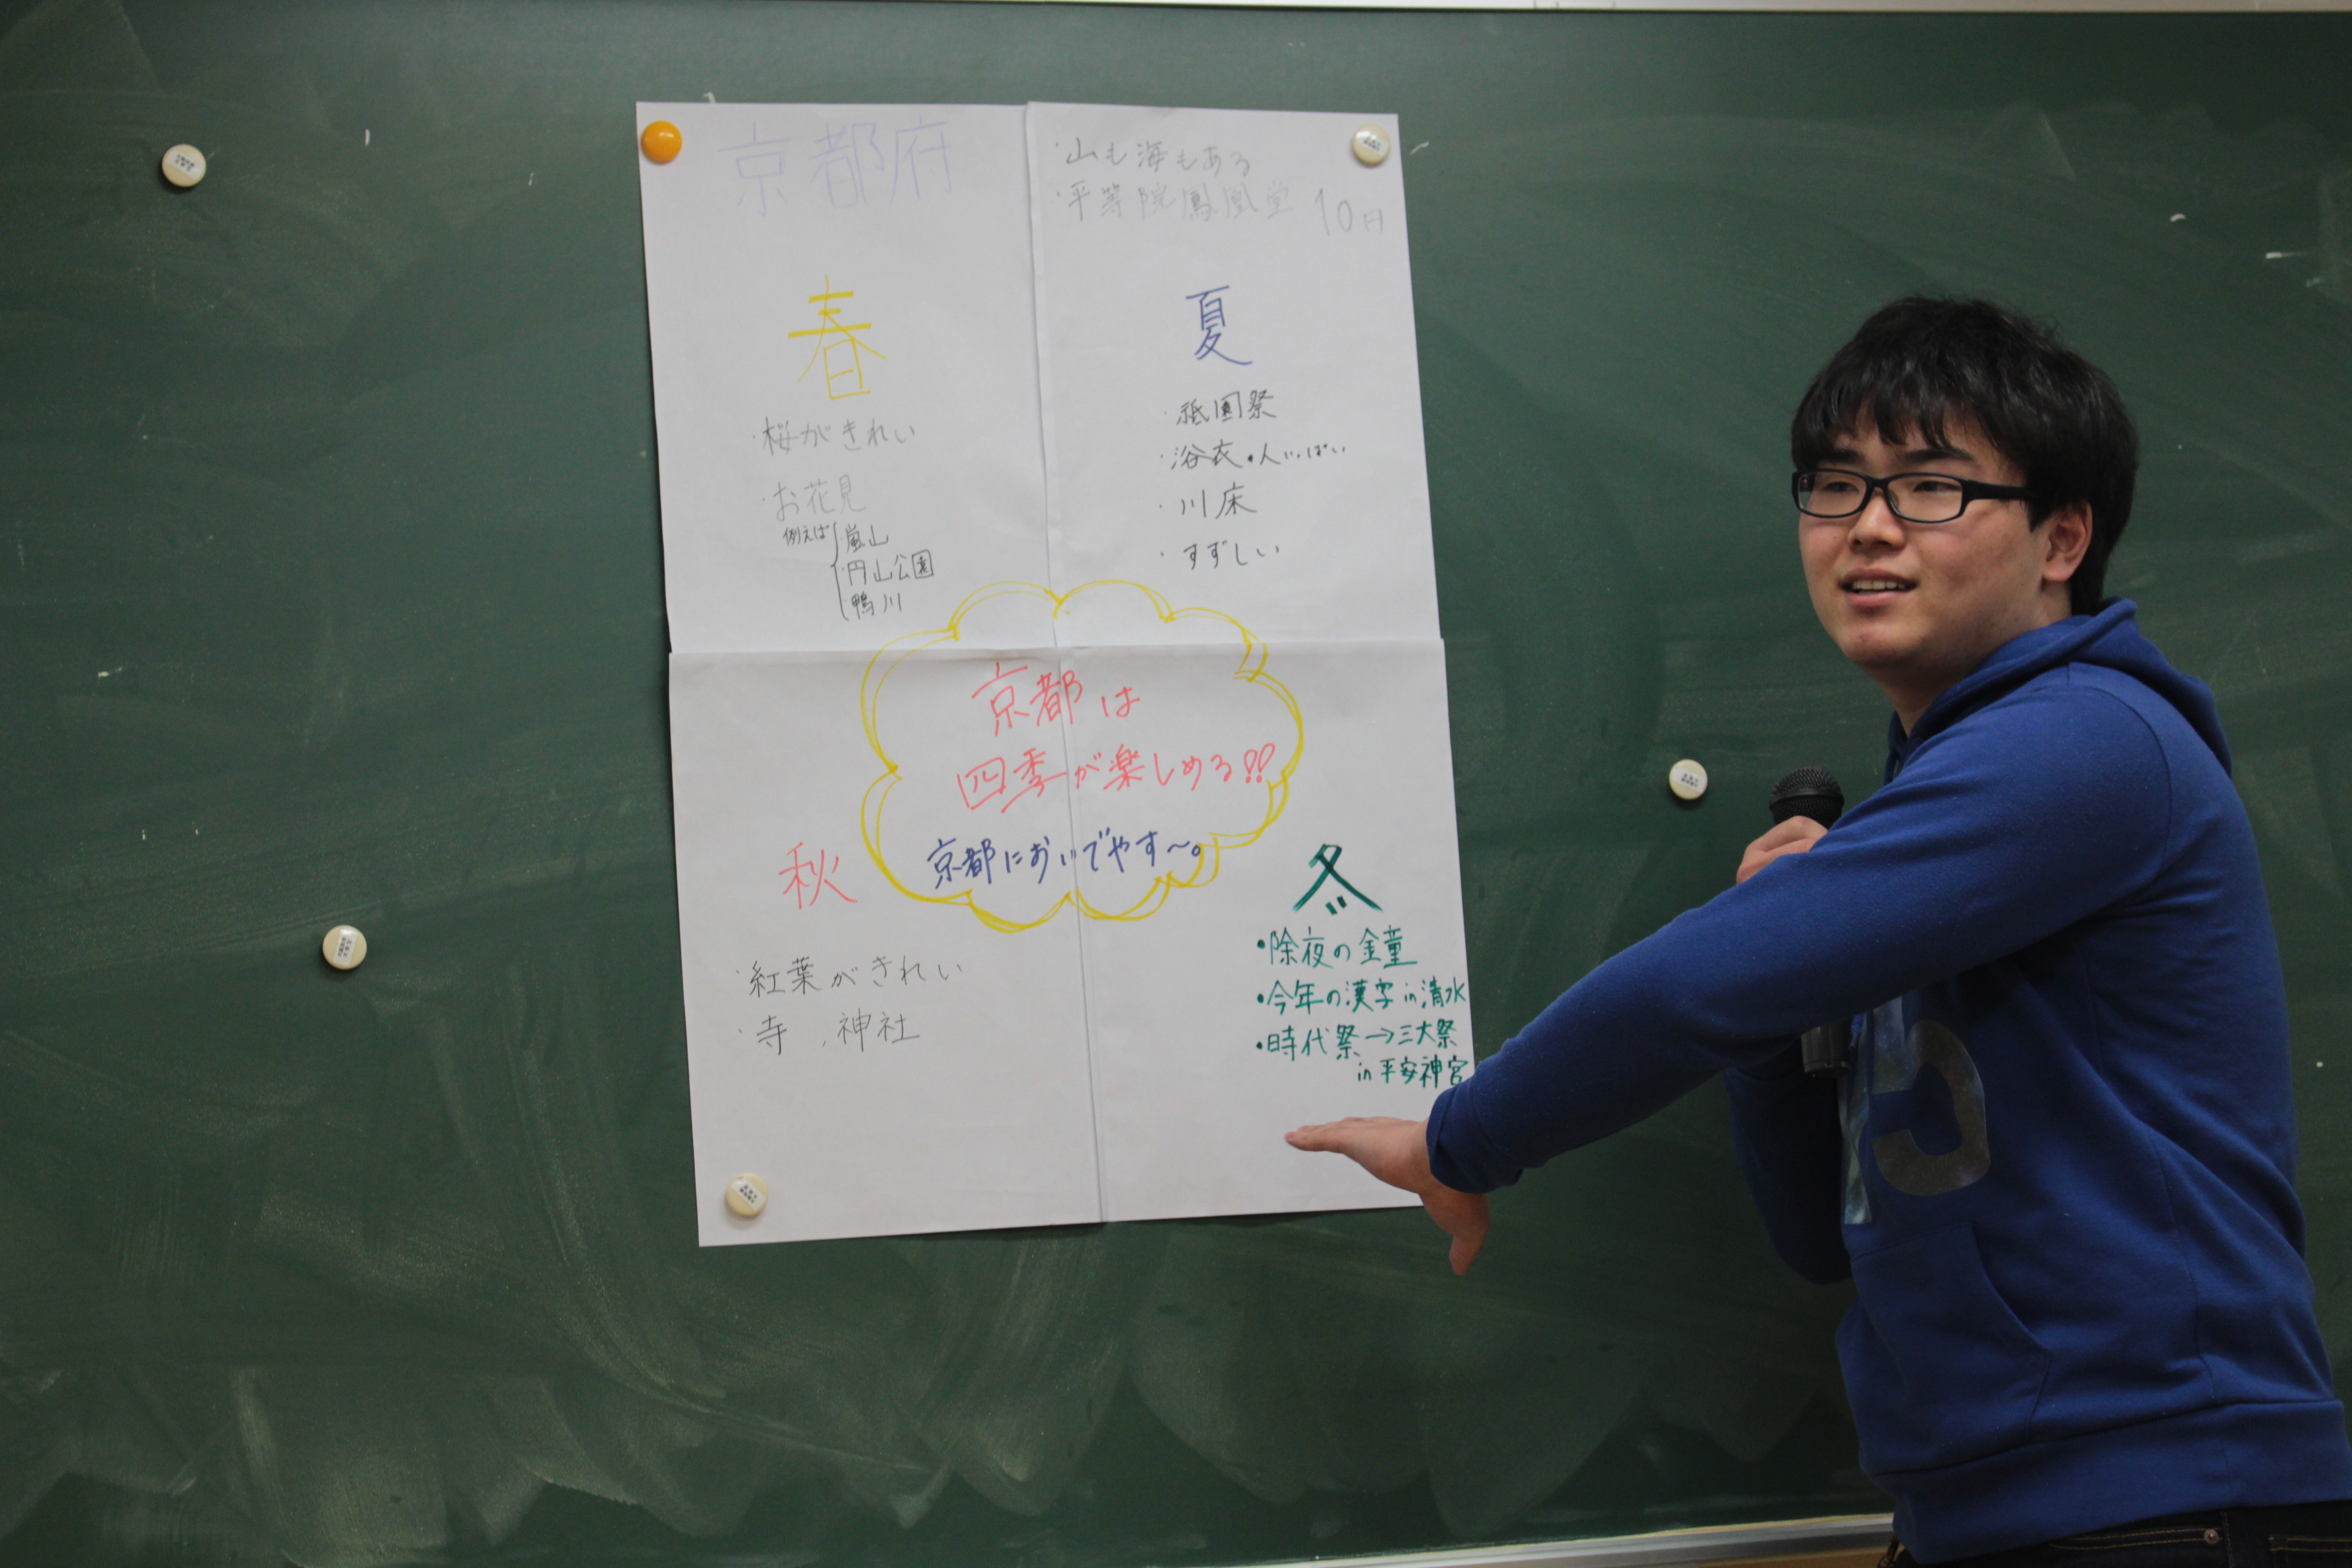 京都府
・山も海もある
・平等院鳳凰堂 10円
春
・桜がきれい
・お花見
例えば
・嵐山
・円山公園
・鴨川
夏
・祇園祭
・浴衣の人いっぱい
・川床
・すずしい
京都は
四季が楽しめる!!
京都においでやす〜。
秋
・紅葉がきれい
・寺、神社
冬
・除夜の鐘
・今年の漢字in清水
・時代祭→三大祭
in平安神宮
5